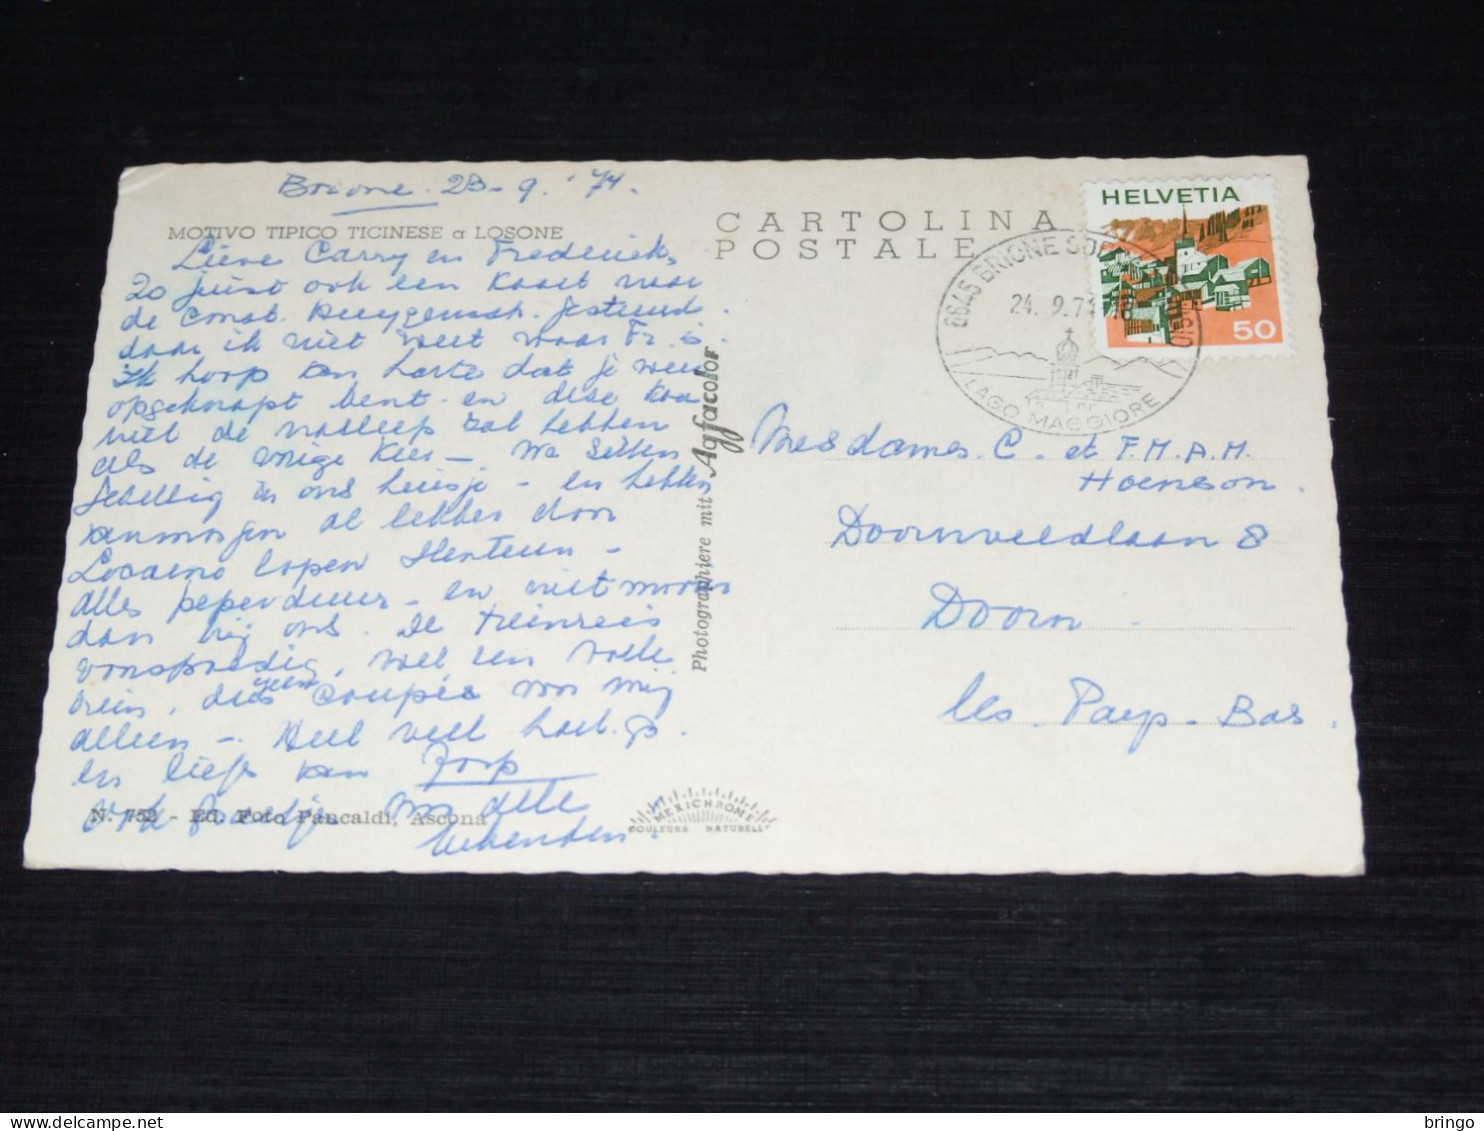 Brione 23-9-'74.
MOTIVO TIPICO TICINESE a LOSONE
Lieve Carry en Frederiek,
Zo juist ook een kaart naar
de Const. Huygensstr. gestuurd
daar ik niet weet waar Fr. is.
Ik hoop van harte dat je weer
opgeknapt bent en deze
niet de nasleep zal hebben
als de vorige keer - We zitten
gezellig in ons huisje - en hebben
vanmorgen al lekker door
Locarno lopen
alles peperduur - en niet mooier
dan bij ons. De treinreis
voorspoedig, wel een volle
trein, dus geen coupée voor mij
alleen - Heel veel hartel. gr.
en liefs van Joop
ook
N. 752 - Ed. Foto Pancaldi, Ascona
CARTOLINA
POSTALE
Photographiere mit Agfacolor
MEXICHROME
COULEURS NATURELLES
HELVETIA
50
6645 BRIONE SOPRA
24.9.74-18
LAGO MAGGIORE
Mesdames C. et F.M.A.M.
Hoenson.
Doornveldlaan 8
Doorn
les Pays-Bas.
bringo